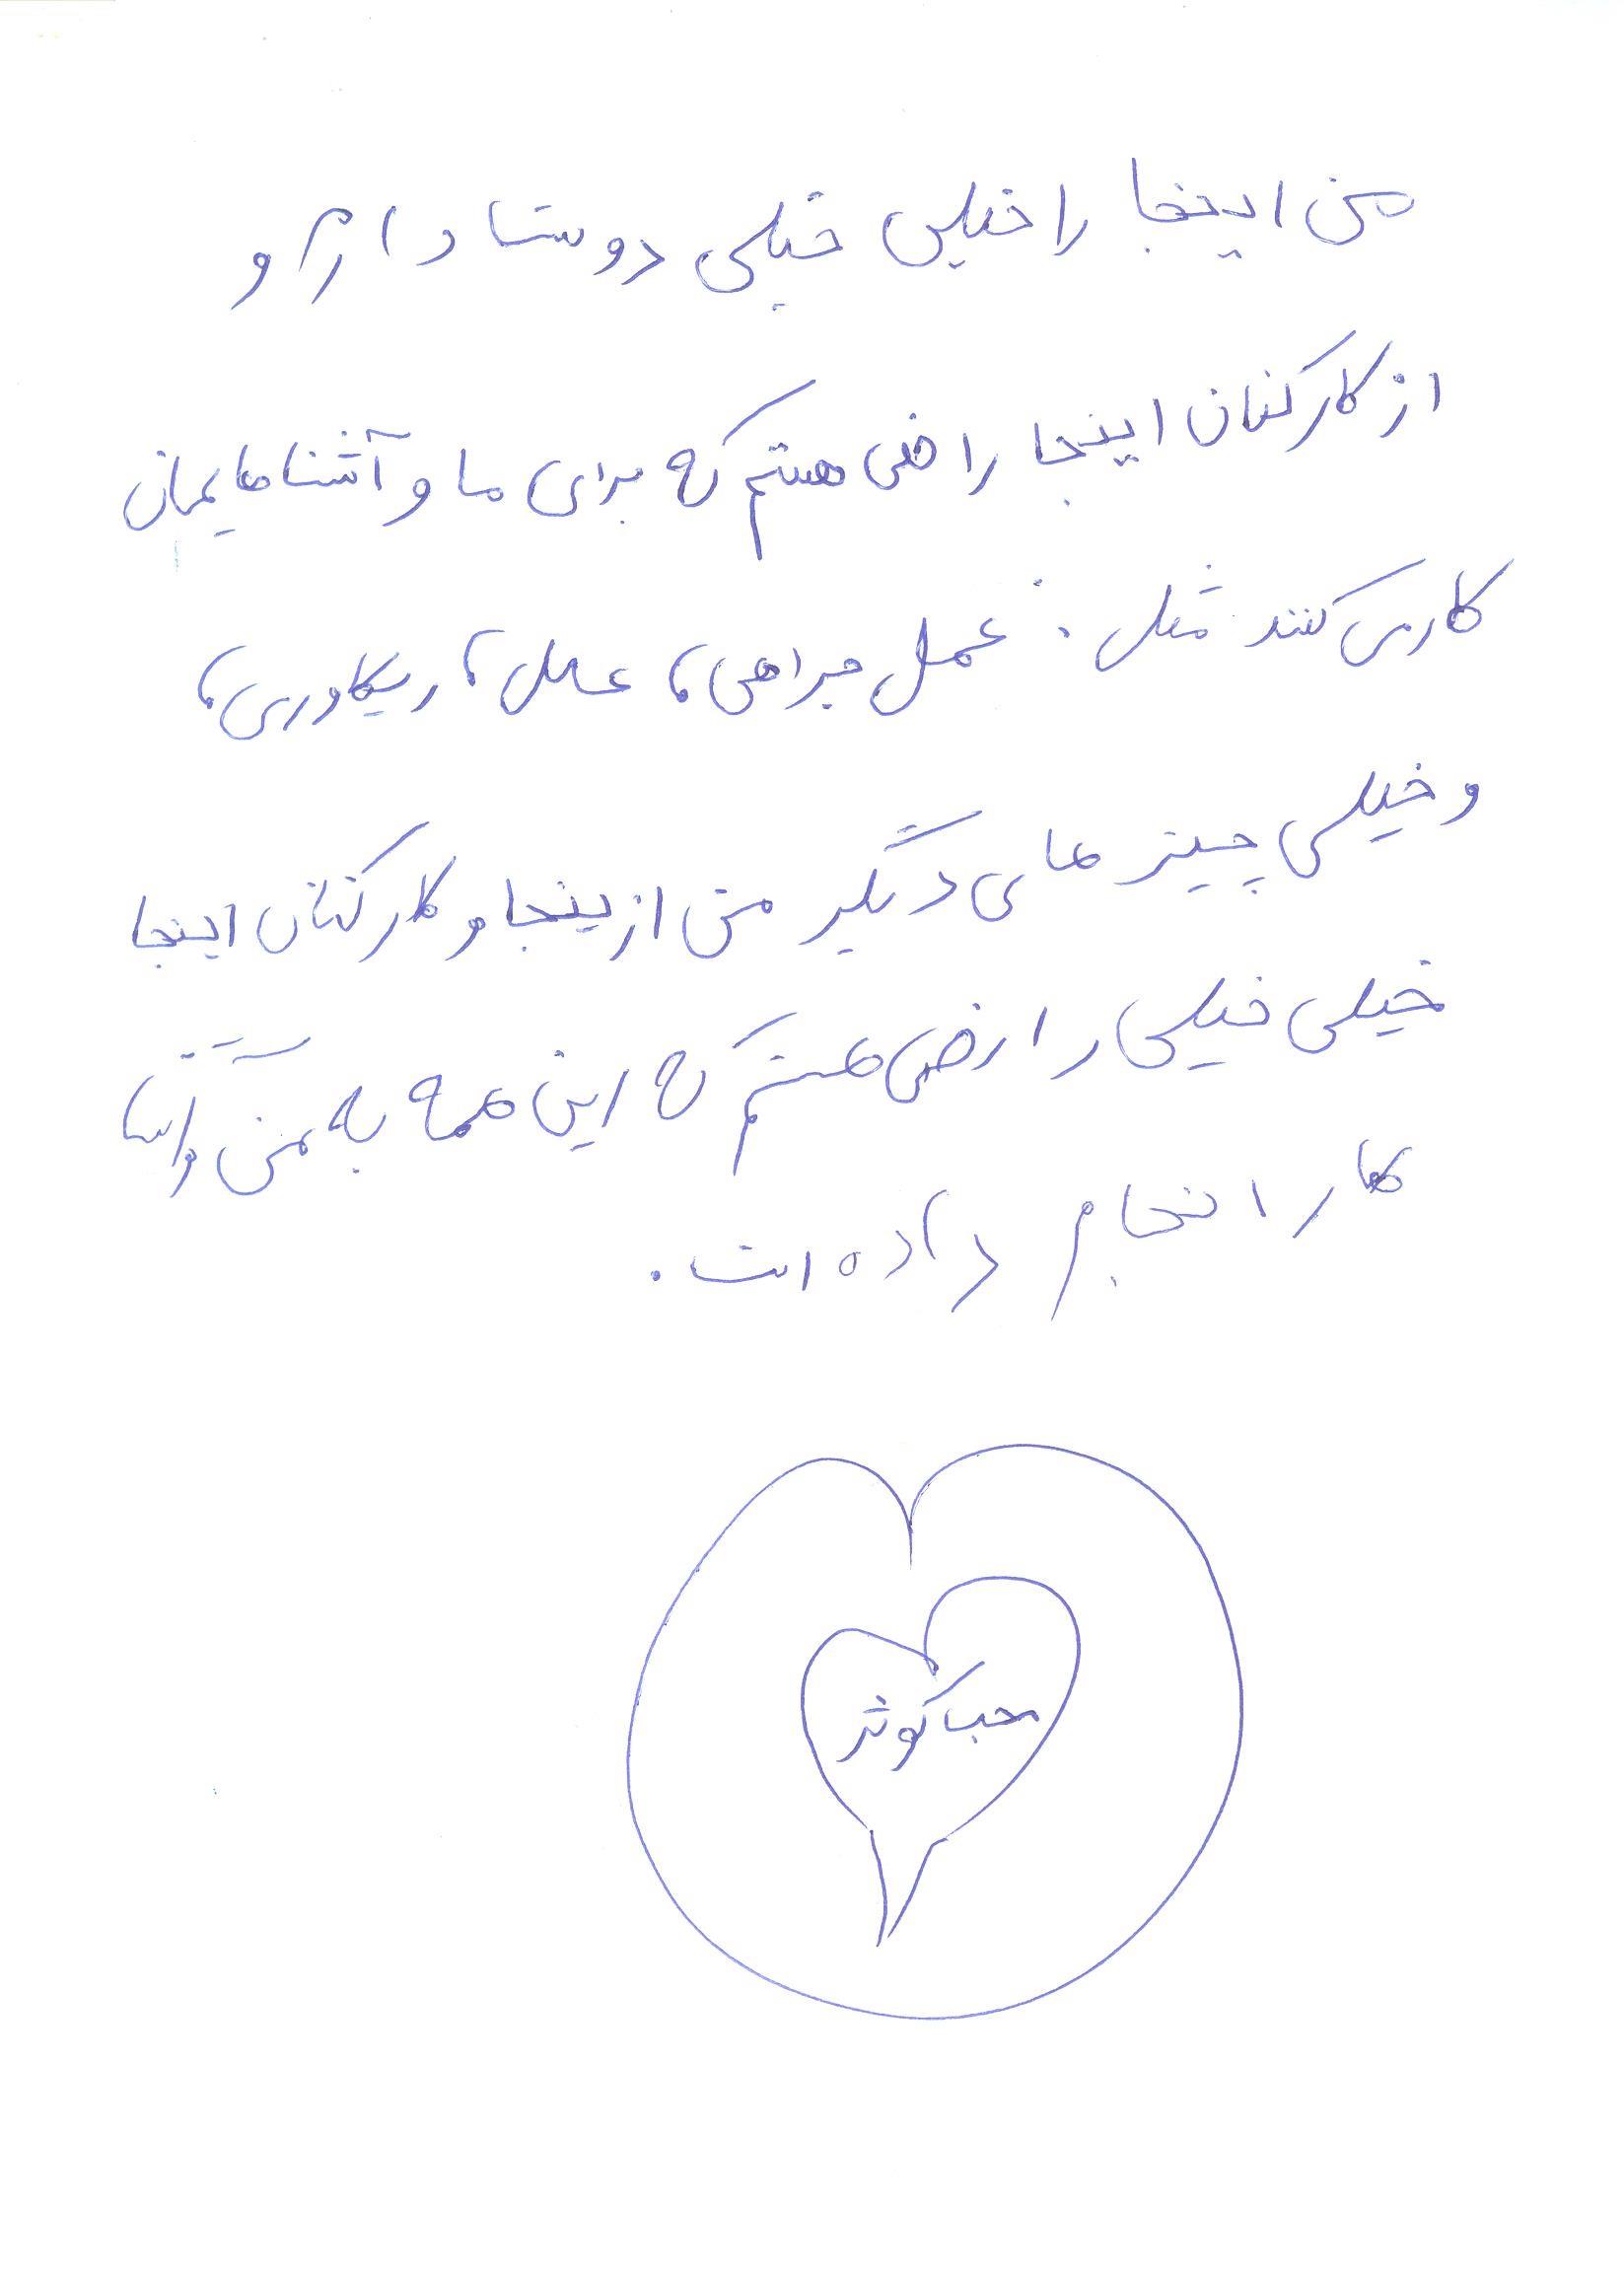 من اینجا را خیلی خیلی دوست دارم و
از کارکنان اینجا راضی هستم که برای ما و آشناهایمان
کار می کنند مثل: عمل جراحی، عسل، ریکاوری،
و خیلی چیز های دیگیر من از ینجا و کارکنان اینجا
خیلی خیلی راارضی هستم که این همه به من و
کار انجام داده است.
محب کوثر